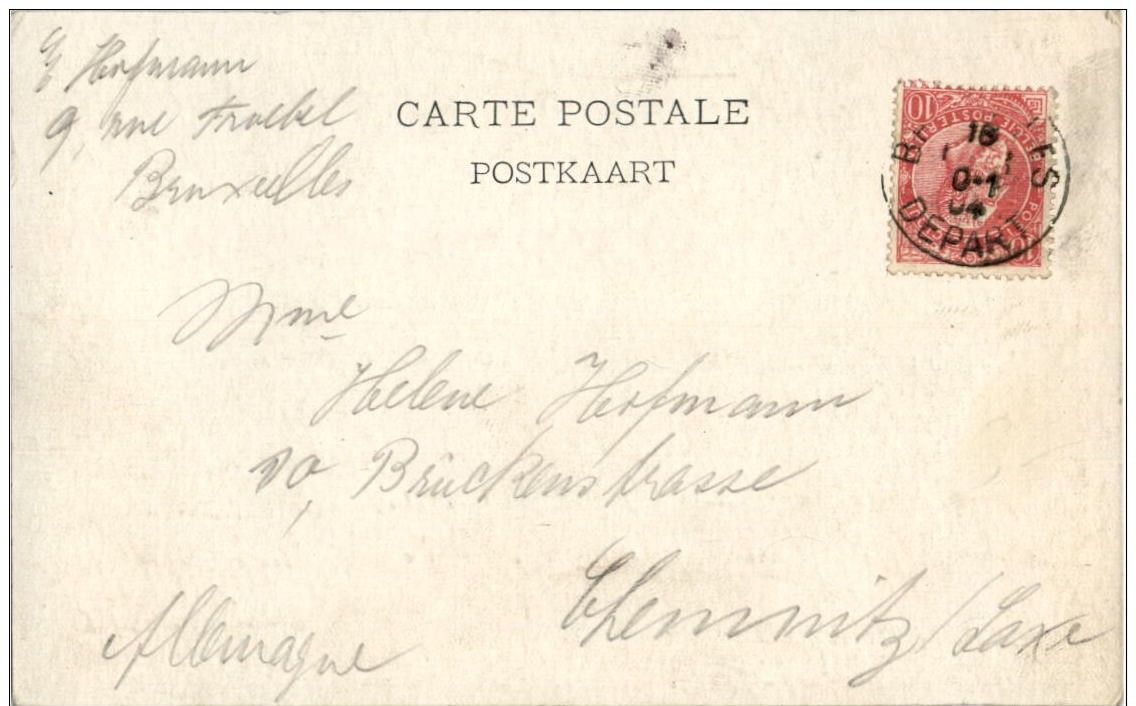 Hofmann
9, rue Froebel
Bruxelles
CARTE POSTALE
POSTKAART
10
BELGIE POSTERIJ
18
04
DEPART
Mme
Helene Hofmann
Brückenstrasse
Chemnitz / Saxe
Allemagne